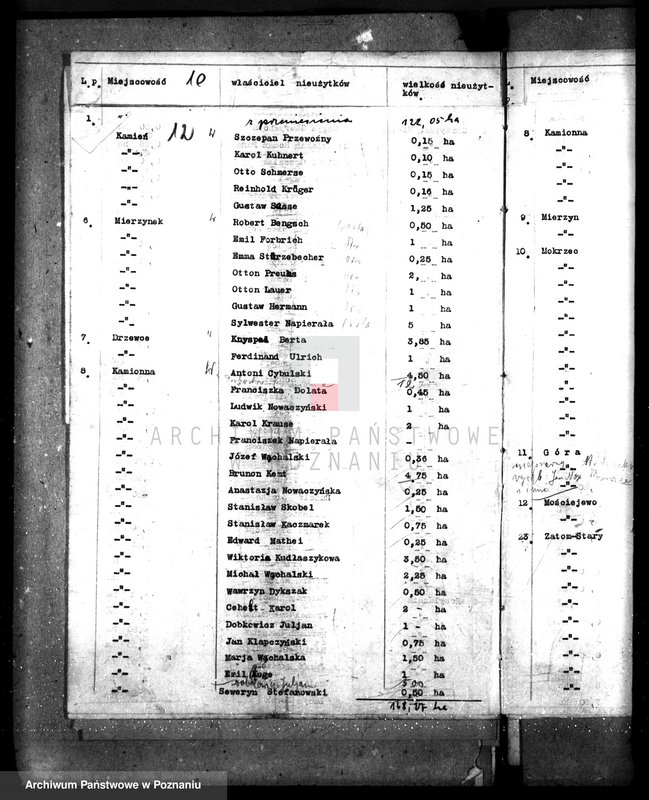 L.p. Miejscowość 10 właściciel nieużytków wielkość nieużyt-
ków.
1. " z przeniesienia 122,05 ha
Kamień 12 " Szczepan Przewoźny 0,15 ha
-"- Karol Kuhnert 0,10 ha
-"- Otto Schmerse 0,15 ha
-"- Reinhold Krüger 0,16 ha
-"- Gustaw 1,25 ha
6. Mierzynek " Robert Bengsch 0,50 ha
-"- Emil Forbrich 1 ha
-"- Emma Sturzebecher 0,25 ha
-"- Otton Preuss 2, ha
-"- Otton Lauer 1 ha
-"- Gustaw Hermann 1 ha
-"- Sylwester Napierała 5 ha
7. Drzewce " Knyspel Berta 3,85 ha
-"- Ferdinand Ulrich 1 ha
8. Kamionna Antoni Cybulski 4,50 ha
-"- Franciszka Dolata 0,45 ha
-"- Ludwik Nowaczyński 1 ha
-"- Karol Krause 2 ha
-"- Franciszek Napierała - ha
-"- Józef Wąchalski 0,36 ha
-"- Brunon Kent 4,75 ha
-"- Anastazja Nowaczyńska 0,25 ha
-"- Stanisław Skobel 1,50 ha
-"- Stanisław Kaczmarek 0,75 ha
-"- Edward Mathei 0,25 ha
-"- Wiktoria Kudłaszykowa 3,50 ha
-"- Michał Wąchalski 2,25 ha
-"- Wawrzyn Dykszak 0,50 ha
-"- Karol 2 - ha
-"- Dobkowicz Juljan 1 - ha
-"- Jan Klapczyński 0,75 ha
-"- Marja Wąchalska 1,50 ha
-"- Emil Kuge 1 ha
-"- Seweryn Stefanowski 0,50 ha
168,07 ha
L. Miejscowość
8. Kamionna
-"-
-"-
-"-
-"-
9. Mierzyn
-"-
10. Mokrzec
-"-
-"-
-"-
-"-
-"-
-"-
-"-
-"-
-"-
-"-
-"-
11 Góra
-"-
-"-
12. Mościejewo
-"-
23. Zatom-Stary
-"-
-"-
-"-
-"-
-"-
-"-
-"-
-"-
-"-
ARCHIWUM PAŃSTWOWE
W POZNANIU
Archiwum Państwowe w Poznaniu